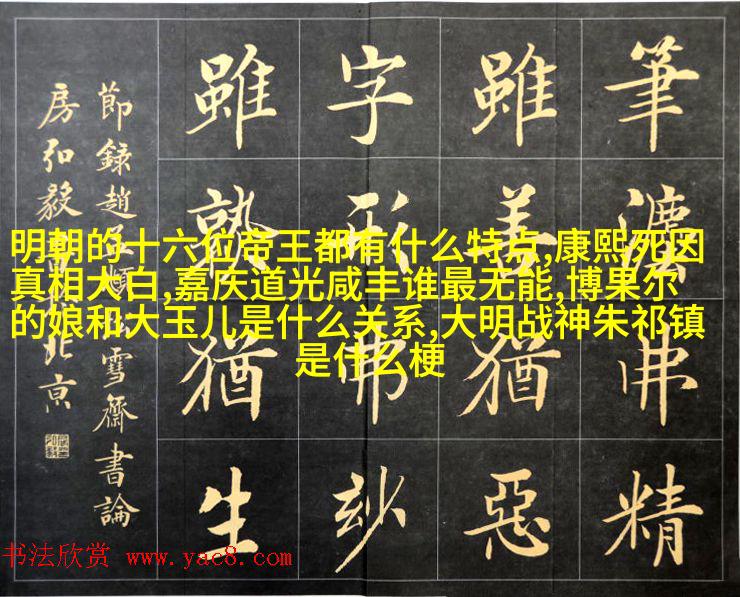 明朝的十六位帝王都有什么特点,康熙死因
真相大白,嘉庆道光咸丰谁最无能,博果尔
的娘和大玉儿是什么关系,大明战神朱祁镇
是什么梗
筆灋弗精
雖善猶惡
字形弗玅
雖熟猶生
節錄趙孟頫松雪齋書論
房弘毅書於北京
书法欣赏 www.yac8.com